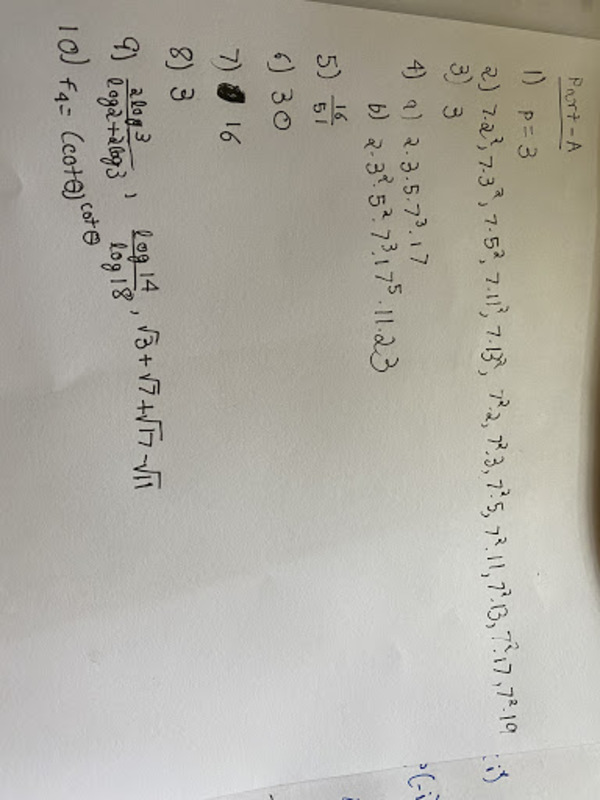 Part-A
1) p=3
2) 7·2², 7·3², 7·5², 7·11², 7·13², 7²·2, 7²·3, 7²·5, 7²·11, 7²·13, 7²·17, 7²·19
3) 3
4) a) 2·3·5·7³·17
b) 2·3²·5²·7³·17⁵·11·23
5) 16/51
6) 30
7) 16
8) 3
9) 2log3/log2+2log3, log14/log18, √3+√7+√17-√11
10) f₄= (cotθ)^cotθ